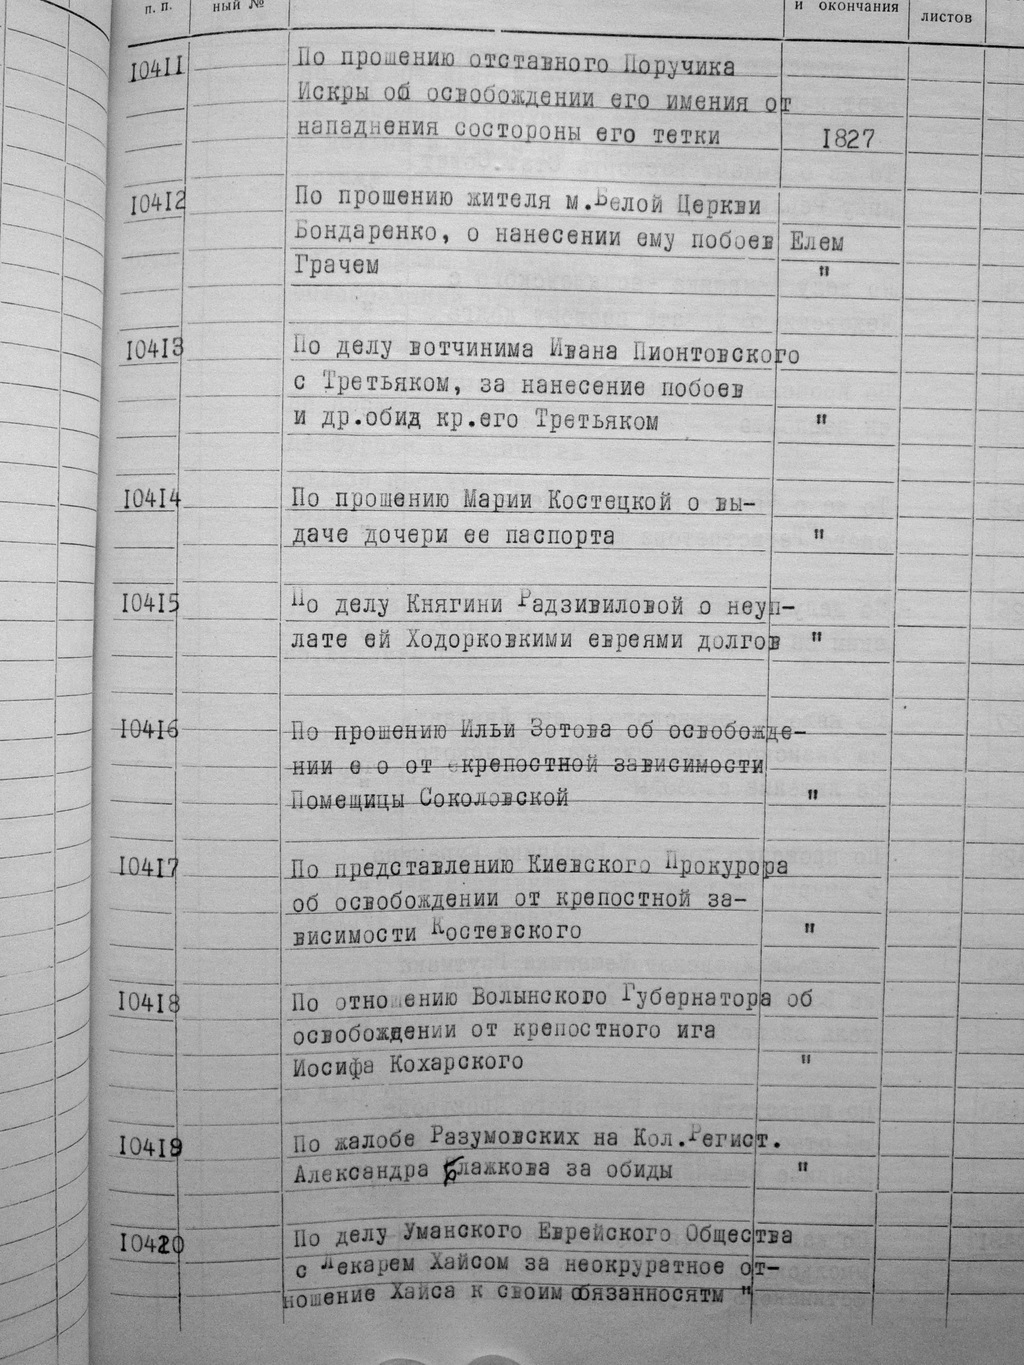 п. п.
ный №
и окончания
листов
10411 По прошению отставного Поручика
Искры об освобождении его имения от
нападнения состороны его тетки 1827
10412 По прошению жителя м.Белой Церкви
Бондаренко, о нанесении ему побоев Елем
Грачем "
10413 По делу вотчинима Ивана Пионтовского
с Третьяком, за нанесение побоев
и др.обид кр.его Третьяком "
10414 По прошению Марии Костецкой о вы-
даче дочери ее паспорта "
10415 По делу Княгини Радзивиловой о неуп-
лате ей Ходорковкими евреями долгов "
10416 По прошению Ильи Зотова об освобожде-
нии е о от крепостной зависимости
Помещицы Соколовской "
10417 По представлению Киевского Прокурора
об освобождении от крепостной за-
висимости Костевского "
10418 По отно ению Волынского Губернатора об
освобождении от крепостного ига
Иосифа Кохарского "
10419 По жалобе Разумовских на Кол.Регист.
Александра Блажкова за обиды "
10420 По делу Уманского Еврейского Общества
с Лекарем Хайсом за неокруратное от-
ношение Хайса к своим обязанносятм "